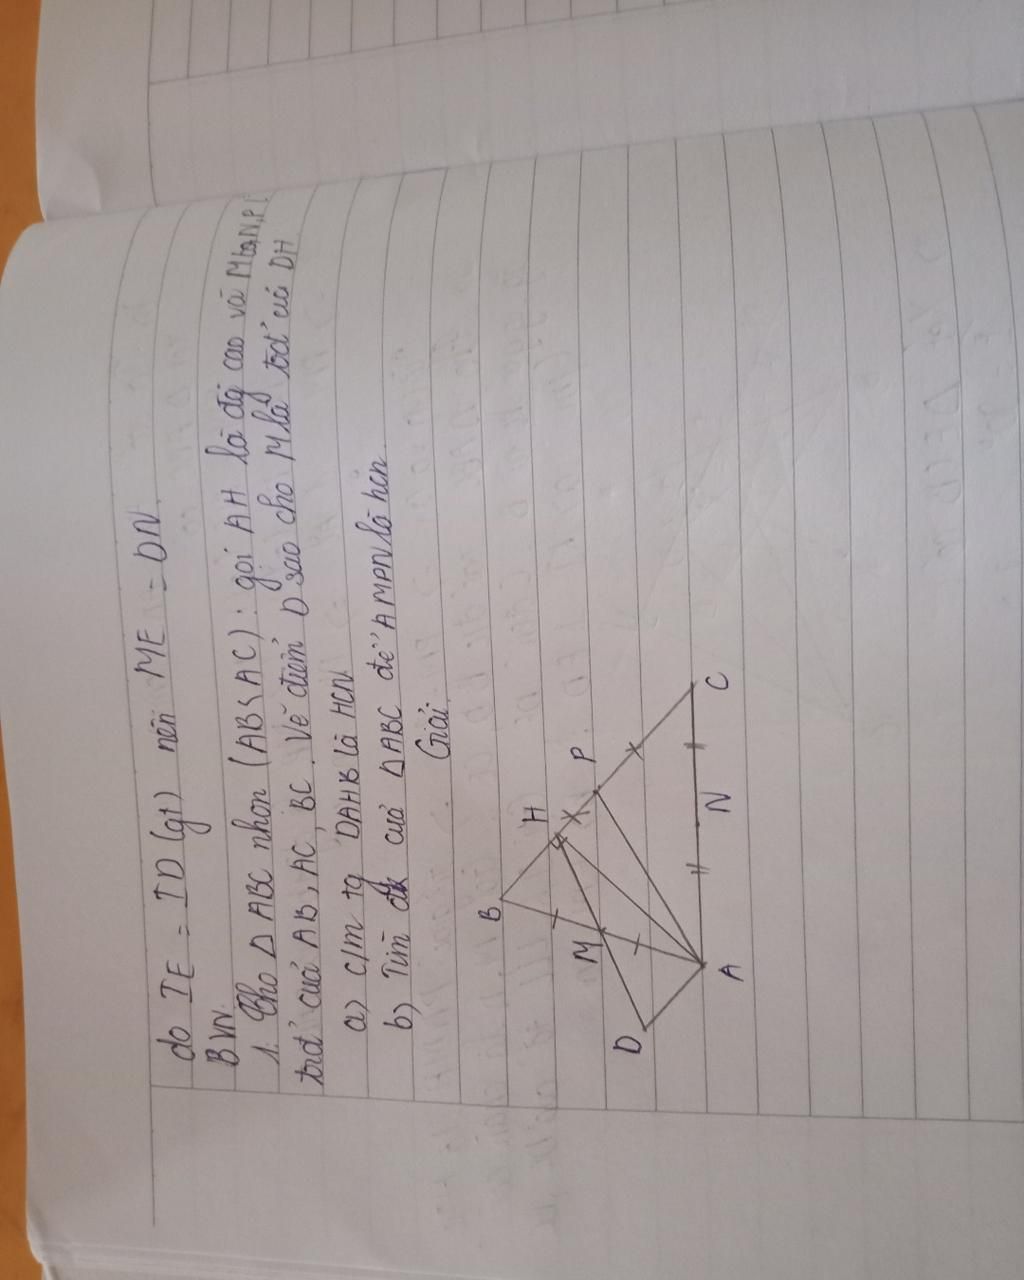 do IE = ID (gt) nên ME = DN.
BVN
1. Cho Δ ABC nhọn (AB < AC): gọi AH là đg cao và M, N, P
trđ' của AB, AC, BC. Vẽ điểm D sao cho M là trđ' của DH
a) c/m tg DAHB là HCN
b) Tìm đk của ΔABC để AMPN là hcn.
Giải
B
H
P
M
D
A
N
C